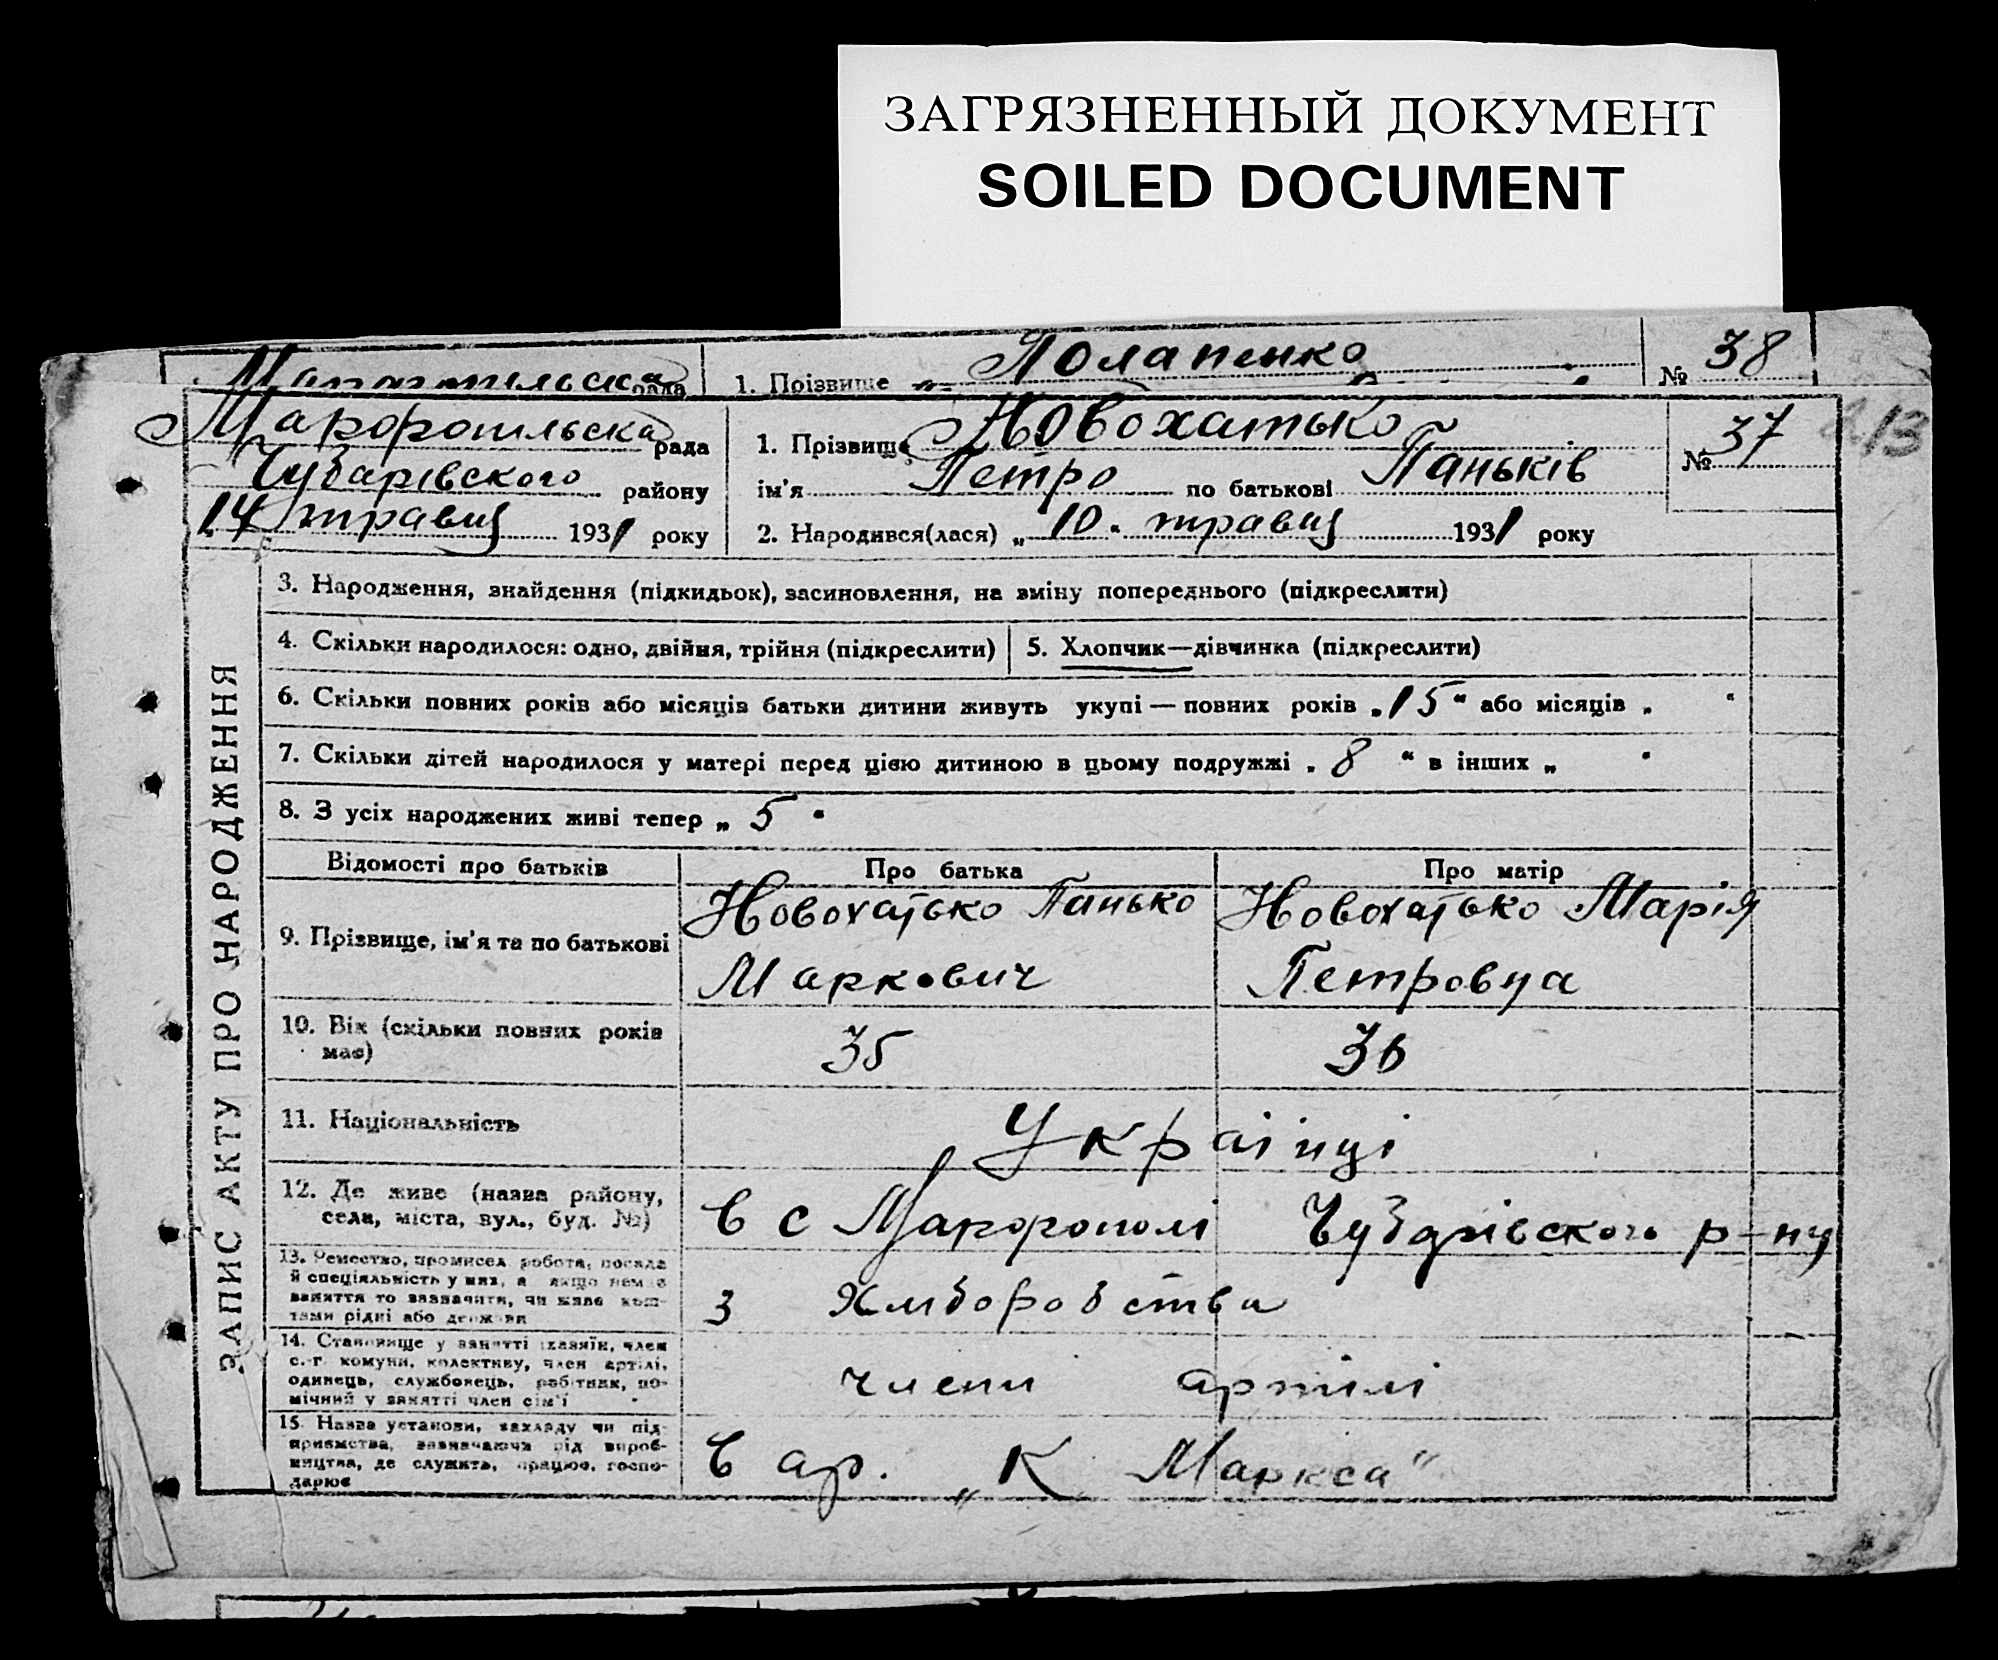 ЗАГРЯЗНЕННЫЙ ДОКУМЕНТ
SOILED DOCUMENT
рада 1. Прізвище Полапенко № 38
рада 1. Прізвище Новохатько № 37
Чубарівского району ім'я Петро по батькові Паньків
14 травця 1931 року 2. Народився(лася) „ 10 “ травця 1931 року
ЗАПИС АКТУ ПРО НАРОДЖЕННЯ
3. Народження, знайдення (підкидьок), засиновлення, на зміну попереднього (підкреслити)
4. Скільки народилося: одно, двійня, трійня (підкреслити) 5. Хлопчик—дівчинка (підкреслити)
6. Скільки повних років або місяців батьки дитини живуть укупі — повних років „ 15 “ або місяців „ “
7. Скільки дітей народилося у матері перед цією дитиною в цьому подружжі „ 8 “ в інших „ “
8. З усіх народжених живі тепер „ 5 “
Відомості про батьків Про батька Про матір
9. Прізвище, ім'я та по батькові
Новохатько Панько
Маркович
Новохатько Марія
Петровна
10. Вік (скільки повних років
має)
35 36
11. Національність Українці
12. Де живе (назва району,
села, міста, вул., буд. №)
в с Чубарівского р-ну
13. Ремество, промисел робота, посада
й спеціяльність у них, а якщо немає
заняття то зазначити, чи живе кош-
тами рідні або держави
з Хліборобства
14. Становище у занятті (хазяїн, член
с.-г. комуни, колективу, член артілі,
одинець, службовець, робітник, по-
мічний у занятті член сім'ї
члени артілі
15. Назва установи, закладу чи під-
приємства, зазначаючи рід вироб-
ництва, де служить, працює, госпо-
дарює
в ар. „К Маркса“